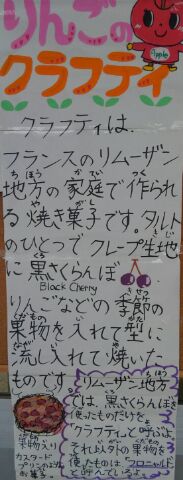 りんごの
Apple
クラフティ
クラフティは、
フランスのリムーザン
地方の家庭で作られ
る焼き菓子です。タルト
のひとつでクレープ生地
に黒さくらんぼ、
Black Cherry
りんごなどの季節の
果物を入れて型に
流し入れて焼いた
ものです。
リムーザン地方
では、黒さくらんぼを
使ったものだけを、
「クラフティ」と呼ぶよ。
それ以外の果物を
使ったものは「フロニャルド」
と呼んでいるよ。
果物入り
カスタード
プリンのような
お菓子